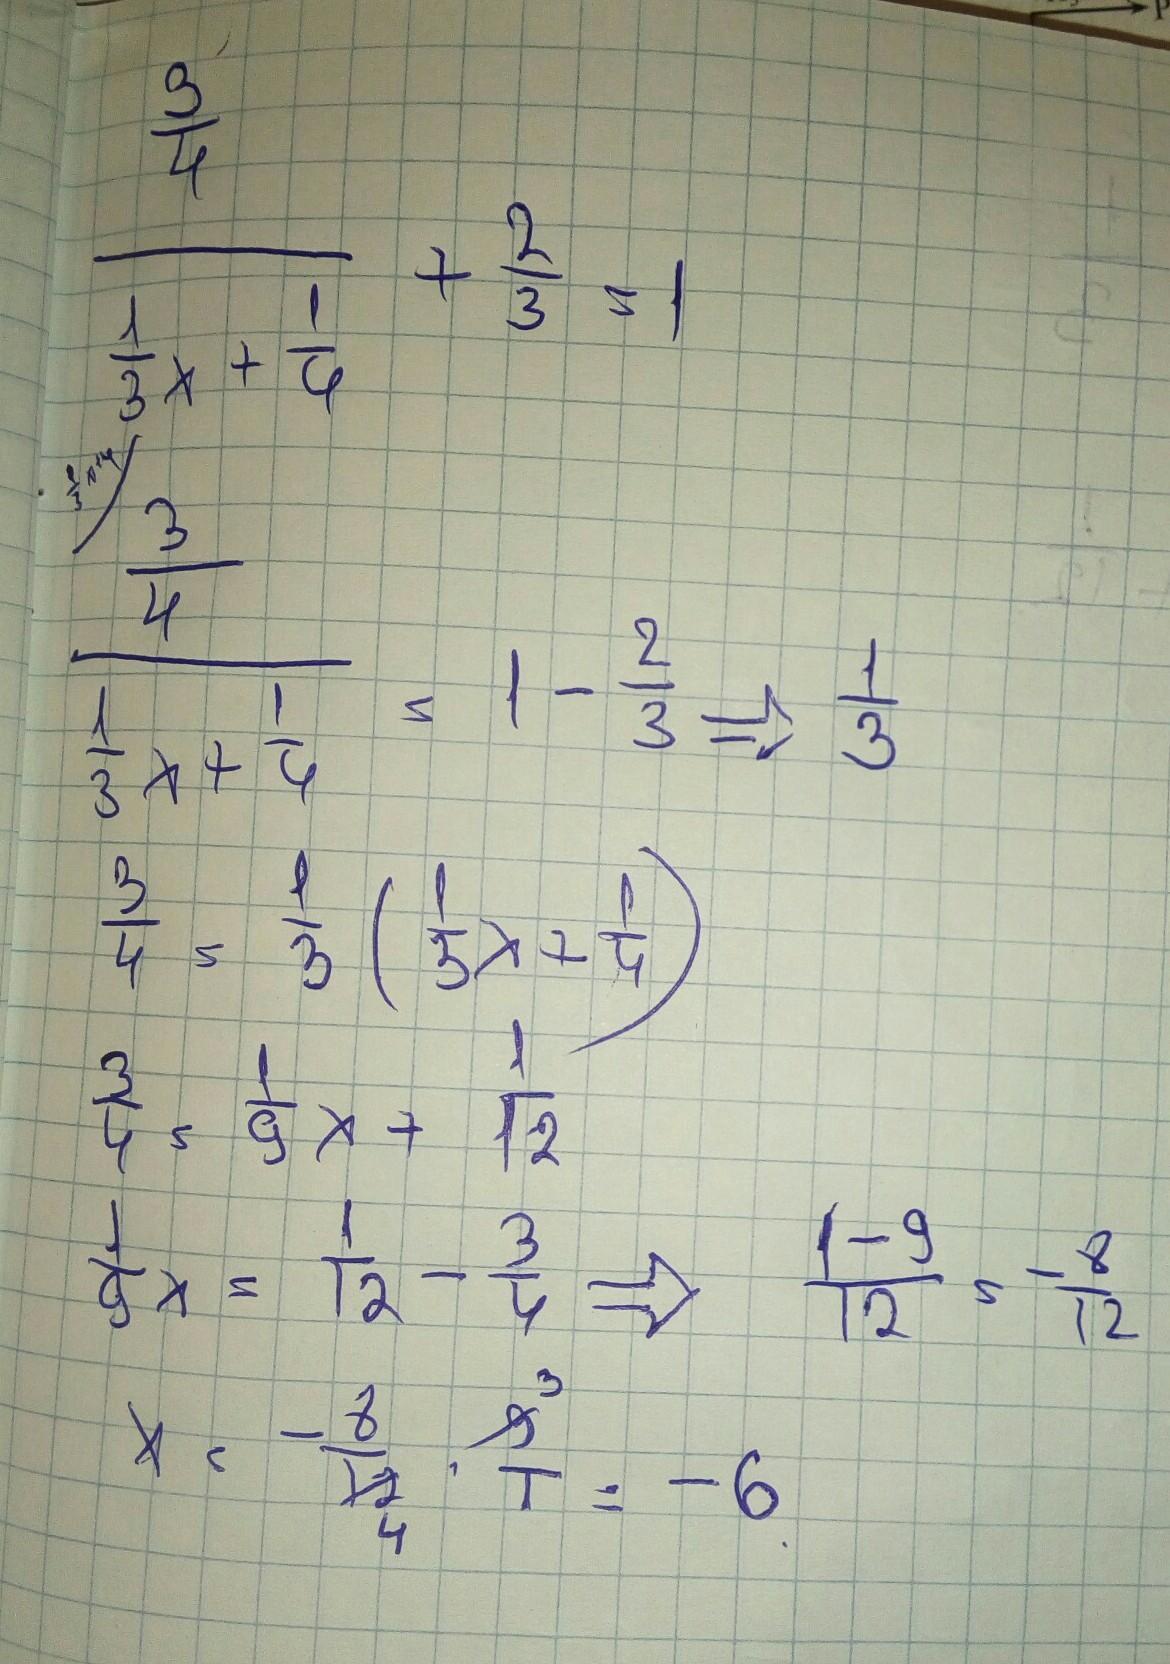 3/4 / (1/3 x + 1/4) + 2/3 = 1
3/4 / (1/3 x + 1/4) = 1 - 2/3 ⇒ 1/3
3/4 = 1/3 (1/3 x + 1/4)
3/4 = 1/9 x + 1/12
1/9 x = 1/12 - 3/4 ⇒ (1-9)/12 = -8/12
x = -8/12 4 · 9 3/1 = -6